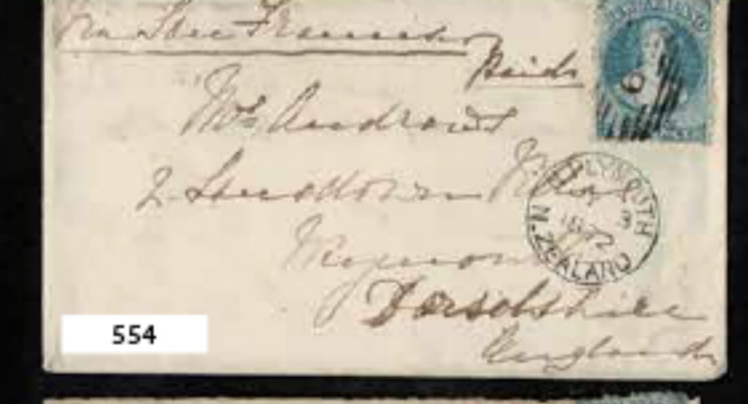 Via San Francisco
Paid
Mrs Andrews
2 Lansdown
Dorsetshire
England
PLYMOUTH
3
187
N. ZEALAND
6
554